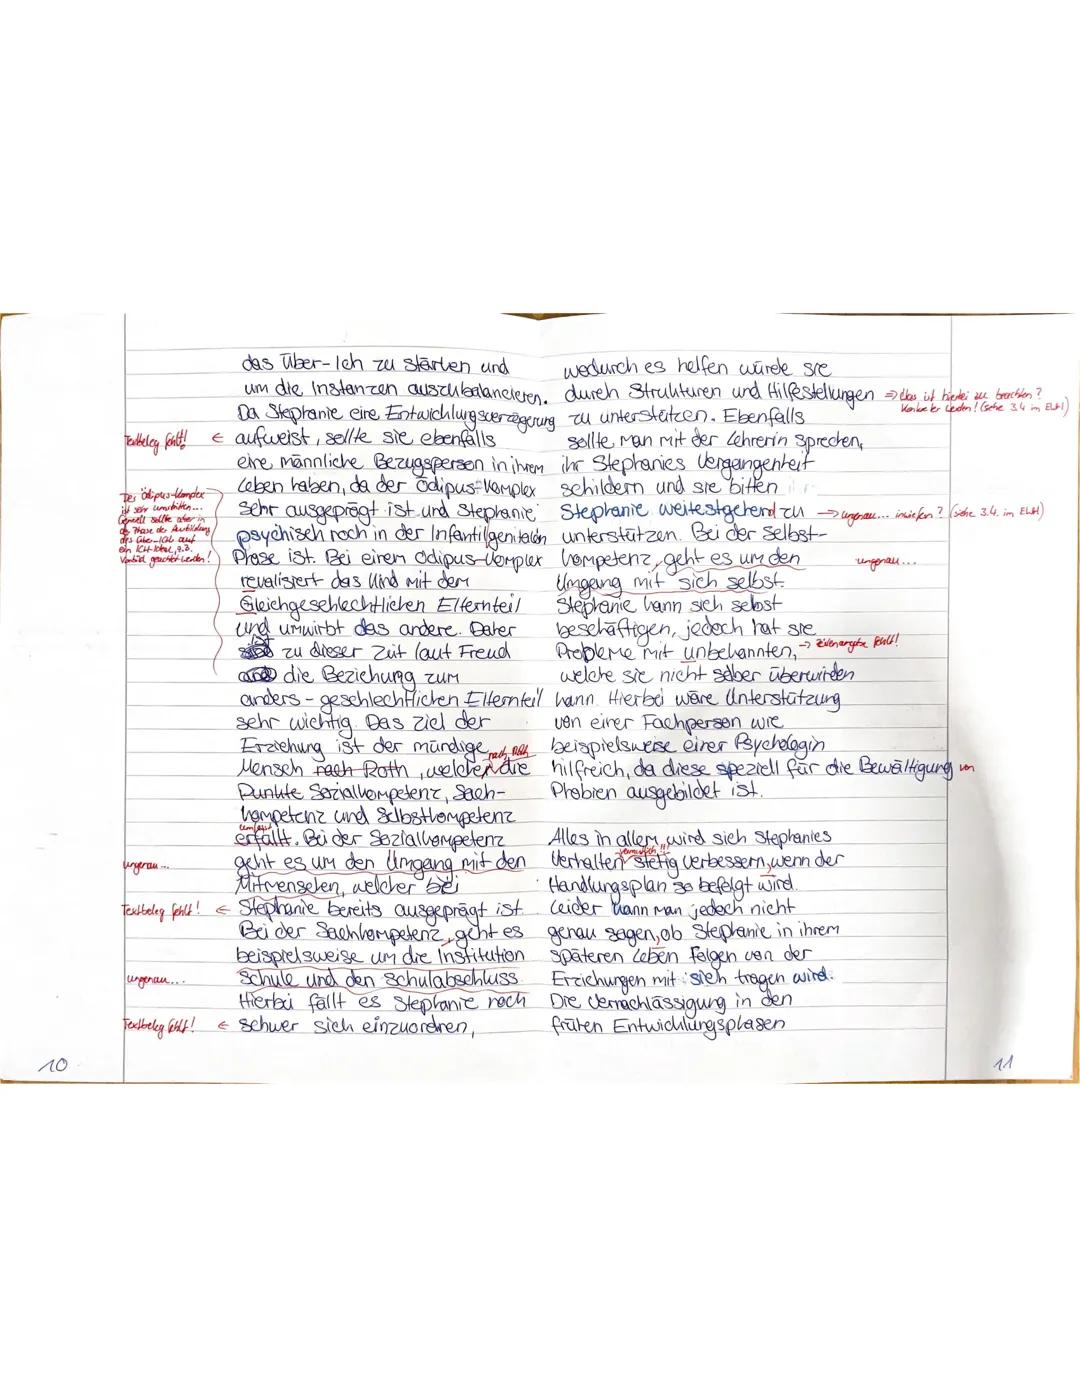 das Über-Ich zu stärken und
um die Instanzen auszubalancieren.
Da Stephanie eine Entwicklungsverzögerung
Textbeleg fehlt! ← aufweist, sollte sie ebenfalls
eine männliche Bezugsperson in ihrem
Leben haben, da der Ödipus-Komplex
Der Ödipus-Komplex
ist sehr umstritten...
Generell sollte aber in
der Phase der Ausbildung
des Über-Ich auf
ein ICH-Ideal, z.B.
Vorbild geachtet werden!
sehr ausgeprägt ist und Stephanie
psychisch noch in der Infantilgenitalen
Phase ist. Bei einem Ödipus-Komplex
revalisiert das Kind mit dem
Gleichgeschlechtlichen Elternteil
und umwirbt das andere. Daher
ist zu dieser Zeit laut Freud
die Beziehung zum
anders-geschlechtlichen Elternteil
sehr wichtig. Das Ziel der
Erziehung ist der mündige
Mensch nach Roth, welcher nach Roth die
Punkte Sozialkompetenz, Sach-
kompetenz und Selbstkompetenz
umfasst
erfüllt. Bei der Sozialkompetenz
ungenau... geht es um den Umgang mit den
Mitmenschen, welcher bei
Textbeleg fehlt! ← Stephanie bereits ausgeprägt ist.
Bei der Sachkompetenz, geht es
beispielsweise um die Institution
ungenau... Schule und den Schulabschluss.
Hierbei fällt es Stephanie noch
Textbeleg fehlt! ← schwer sich einzuordnen,
10
wodurch es helfen würde sie
durch Strukturen und Hilfestellungen ⇒ Was ist hierbei zu beachten?
Konkreter werden! (siehe 3.4 im EWH)
zu unterstützen. Ebenfalls
sollte man mit der Lehrerin sprechen,
ihr Stephanies Vergangenheit
schildern und sie bitten
Stephanie weitestgehend zu → ungenau... inwiefern? (siehe 3.4. im EWH)
unterstützen. Bei der Selbst-
kompetenz, geht es um den ungenau...
Umgang mit sich selbst.
Stephanie kann sich selbst
beschäftigen, jedoch hat sie
Probleme mit unbekannten, → Zeilenangabe fehlt!
welche sie nicht selber überwinden
kann. Hierbei wäre Unterstützung
von einer Fachperson wie
beispielsweise einer Psychologin
hilfreich, da diese speziell für die Bewältigung von
Phobien ausgebildet ist.
Alles in allem wird sich Stephanies
vermutlich!!!
Verhalten stetig verbessern, wenn der
Handlungsplan so befolgt wird.
Leider kann man jedoch nicht
genau sagen, ob Stephanie in ihrem
späteren Leben Folgen von der
Erziehungen mit sich tragen wird.
Die Vernachlässigung in den
früten Entwicklungsplasen
11